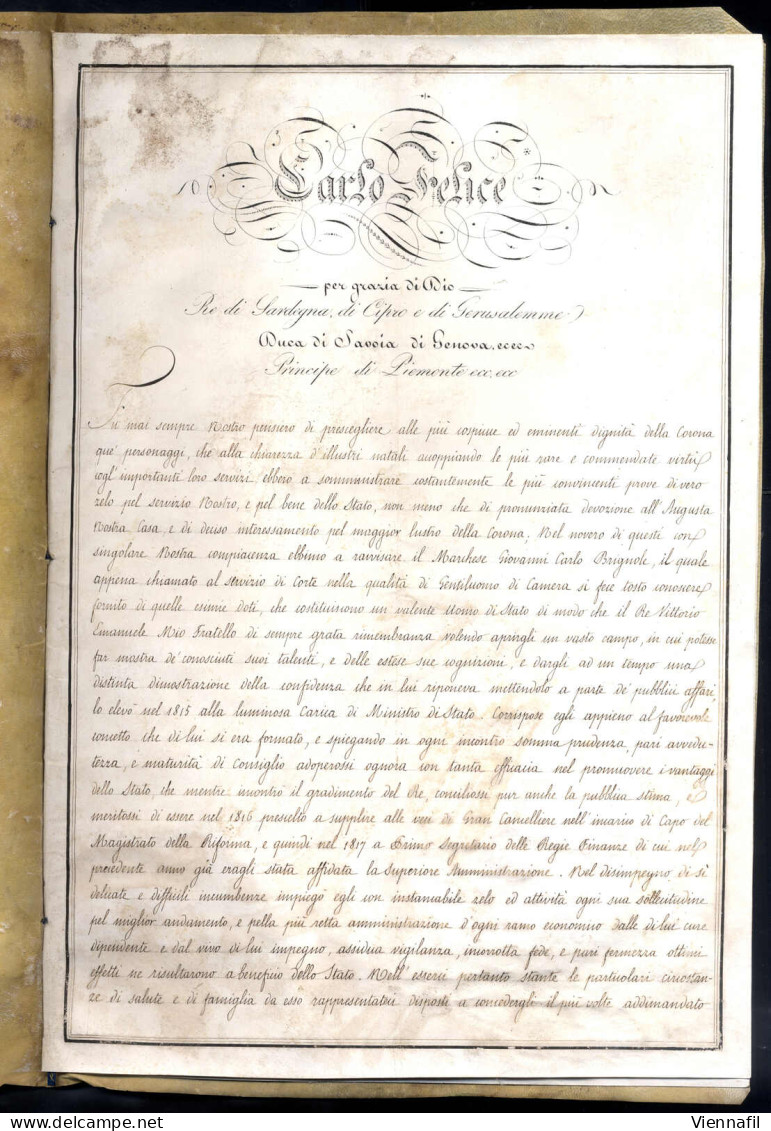 Carlo Felice
per grazia di Dio
Re di Sardegna, di Cipro e di Gerusalemme
Duca di Savoia di Genova, ecc ecc
Principe di Piemonte ecc. ecc
Fu mai sempre Nostro pensiero di prescegliere alle più cospicue ed eminenti dignità della Corona
que' personaggi, che alla chiarezza d'illustri natali accoppiando le più rare e commendate virtù
cogl'importanti loro servizi ebbero a somministrare costantemente le più convincenti prove di vero
zelo pel servizio Nostro, e pel bene dello Stato, non meno che di pronunziata devozione all'Augusta
Nostra Casa, e di deciso interessamento pel maggior lustro della Corona. Nel novero di questi con
singolare Nostra compiacenza ebbimo a ravvisare il Marchese Giovanni Carlo Brignole, il quale
appena chiamato al servizio di Corte nella qualità di Gentiluomo di Camera si fece tosto conoscere
fornito di quelle esimie doti, che costituiscono un valente Uomo di Stato di modo che il Re Vittorio
Emanuele Mio Fratello di sempre grata rimembranza volendo aprirgli un vasto campo, in cui potesse
far mostra de' conosciuti suoi talenti, e delle estese sue cognizioni, e dargli ad un tempo una
distinta dimostrazione della confidenza che in lui riponeva mettendolo a parte de' pubblici affari,
lo elevò nel 1815 alla luminosa Carica di Ministro di Stato. Corrispose egli appieno al favorevole
concetto che di lui si era formato, e spiegando in ogni incontro somma prudenza, pari avvedu-
tezza, e maturità di Consiglio adoperossi ognora con tanta efficacia nel promuovere i vantaggi
dello Stato, che mentre incontrò il gradimento del Re, conciliossi pur anche la pubblica stima, e
meritossi di essere nel 1816 prescielto a supplire alle veci di Gran Cancelliere nell'incarico di Capo del
Magistrato della Riforma, e quindi nel 1817 a Primo Segretario delle Regie Finanze di cui nel
precedente anno già eragli stata affidata la Superiore Amministrazione. Nel disimpegno di sì
delicate e difficili incumbenze impiegò egli con instancabile zelo ed attività ogni sua sollecitudine
pel miglior andamento, e pella più retta amministrazione d'ogni ramo economico dalle di lui cure
dipendente e dal vivo di lui impegno, assidua vigilanza, incorrotta fede, e puri fermezza ottimi
effetti ne risultarono a beneficio dello Stato. Nell'esserci pertanto stante le particolari circostan-
ze di salute e di famiglia da esso rappresentateci disposti a concedergli il più volte addimandato
Viennafil